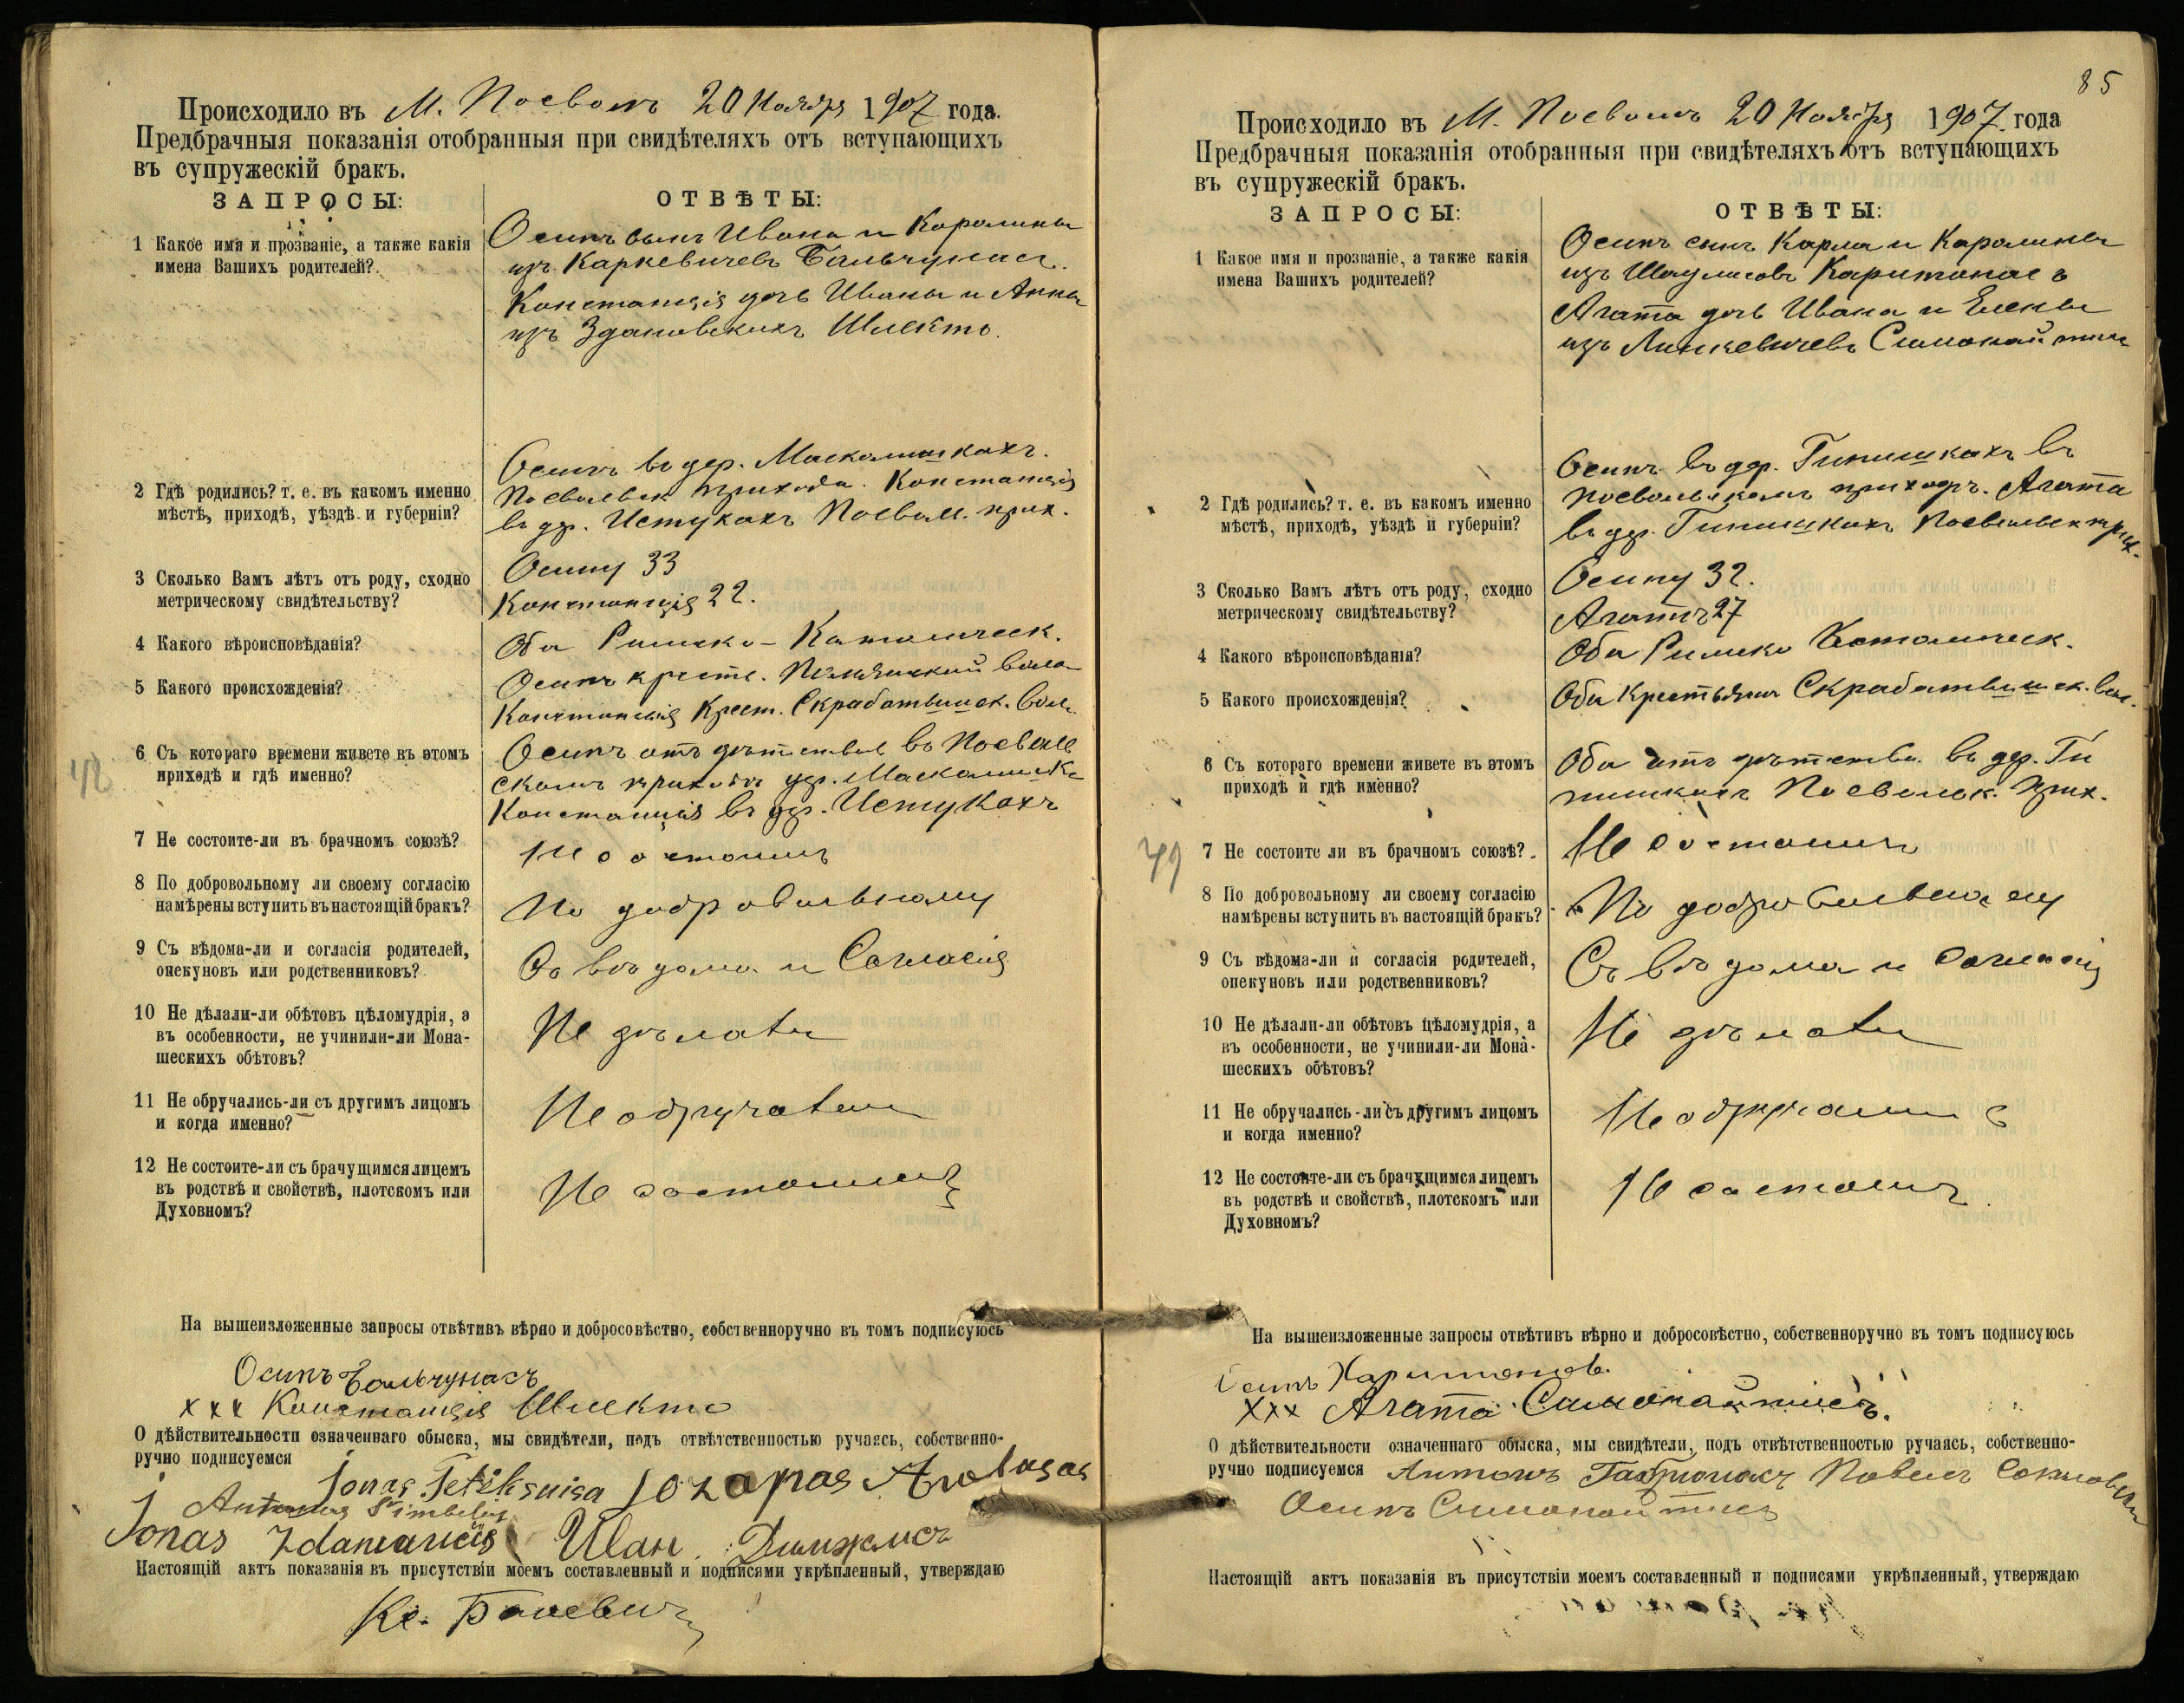 Происходило въ М. Посволъ 20 Ноября 1907 года.
Предбрачныя показанія отобранныя при свидѣтеляхъ отъ вступающихъ
въ супружескій бракъ.
ЗАПРОСЫ:
ОТВѢТЫ:
1 Какое имя и прозваніе, а также какія
имена Вашихъ родителей?
Осипъ сынъ Ивана и Каролины
изъ Каркевичевъ Бальчунасъ.
Констанція дочь Ивана и Анны
изъ Здановскихъ Шлекто.
2 Гдѣ родились? т. е. въ какомъ именно
мѣстѣ, приходѣ, уѣздѣ и губерніи?
Осипъ въ дер. Маскалишкахъ.
Посвольск прихода. Констанція
въ др. Истукахъ Посвол. прих.
3 Сколько Вамъ лѣтъ отъ роду, сходно
метрическому свидѣтельству?
Осипу 33
Констанція 22.
4 Какого вѣроисповѣданія?
Оба Римско-Католическ.
5 Какого происхожденія?
Осипъ крест. воло
Констанція Крест. Скрабатышск. вол.
6 Съ котораго времени живете въ этомъ
приходѣ и гдѣ именно?
Осипъ отъ дѣтства въ Посволь
скомъ приходѣ дер. Маскалишк
Констанція въ др. Истукахъ
7 Не состоите-ли въ брачномъ союзѣ?
Не состоимъ
8 По добровольному ли своему согласію
намѣрены вступить въ настоящій бракъ?
По добровольному
9 Съ вѣдома-ли и согласія родителей,
опекуновъ или родственниковъ?
Съ вѣдома и Согласія
10 Не дѣлали-ли обѣтовъ цѣломудрія, а
въ особенности, не учинили-ли Мона-
шескихъ обѣтовъ?
Не дѣлали
11 Не обручались-ли съ другимъ лицомъ
и когда именно?
Не обручались
12 Не состоите-ли съ брачущимся лицемъ
въ родствѣ и свойствѣ, плотскомъ или
Духовномъ?
Не состоимъ
48
На вышеизложенные запросы отвѣтивъ вѣрно и добросовѣстно, собственноручно въ томъ подписуюсь
Осипъ Бальчунасъ
ххх Констанція Шлекто
О дѣйствительности означеннаго обыска, мы свидѣтели, подъ отвѣтственностью ручаясь, собственно-
ручно подписуемся
Jonas Jozapas
Antanas
Jonas Иван
Настоящій актъ показанія въ присутствіи моемъ составленный и подписями укрѣпленный, утверждаю
Кс.
85
Происходило въ М. Посволъ 20 Ноября 1907 года
Предбрачныя показанія отобранныя при свидѣтеляхъ отъ вступающихъ
въ супружескій бракъ.
ЗАПРОСЫ:
ОТВѢТЫ:
1 Какое имя и прозваніе, а также какія
имена Вашихъ родителей?
Осипъ сынъ Карла и Каролины
изъ Шаулисовъ Каритонасъ
Агата дочь Ивана и Елены
изъ Линкевичевъ Симонайтисъ
2 Гдѣ родились? т. е. въ какомъ именно
мѣстѣ, приходѣ, уѣздѣ и губерніи?
Осипъ въ др. Гинишкахъ въ
Посвольскомъ приходѣ. Агата
въ др. Гинишкахъ Посвольск прих.
3 Сколько Вамъ лѣтъ отъ роду, сходно
метрическому свидѣтельству?
Осипу 32.
Агатѣ 27
4 Какого вѣроисповѣданія?
Оба Римско Католическ.
5 Какого происхожденія?
Оба Крестьяне Скрабатышск. вол.
6 Съ котораго времени живете въ этомъ
приходѣ и гдѣ именно?
Оба отъ дѣтства въ др. Ги
нишкахъ Посвольск. прих.
7 Не состоите ли въ брачномъ союзѣ?
Не состоимъ
49
8 По добровольному ли своему согласію
намѣрены вступить въ настоящій бракъ?
По добровольному
9 Съ вѣдома-ли и согласія родителей,
опекуновъ или родственниковъ?
Съ вѣдома и согласія
10 Не дѣлали-ли обѣтовъ цѣломудрія, а
въ особенности, не учинили-ли Мона-
шескихъ обѣтовъ?
Не дѣлали
11 Не обручались-ли съ другимъ лицомъ
и когда именно?
Не обручались
12 Не состоите-ли съ брачущимся лицемъ
въ родствѣ и свойствѣ, плотскомъ или
Духовномъ?
Не состоимъ
На вышеизложенные запросы отвѣтивъ вѣрно и добросовѣстно, собственноручно въ томъ подписуюсь
Осипъ Харитоновъ.
ххх Агата Симонайтисъ.
О дѣйствительности означеннаго обыска, мы свидѣтели, подъ отвѣтственностью ручаясь, собственно-
ручно подписуемся Антонъ Павелъ
Осипъ Симонайтисъ
Настоящій актъ показанія въ присутствіи моемъ составленный и подписями укрѣпленный, утверждаю